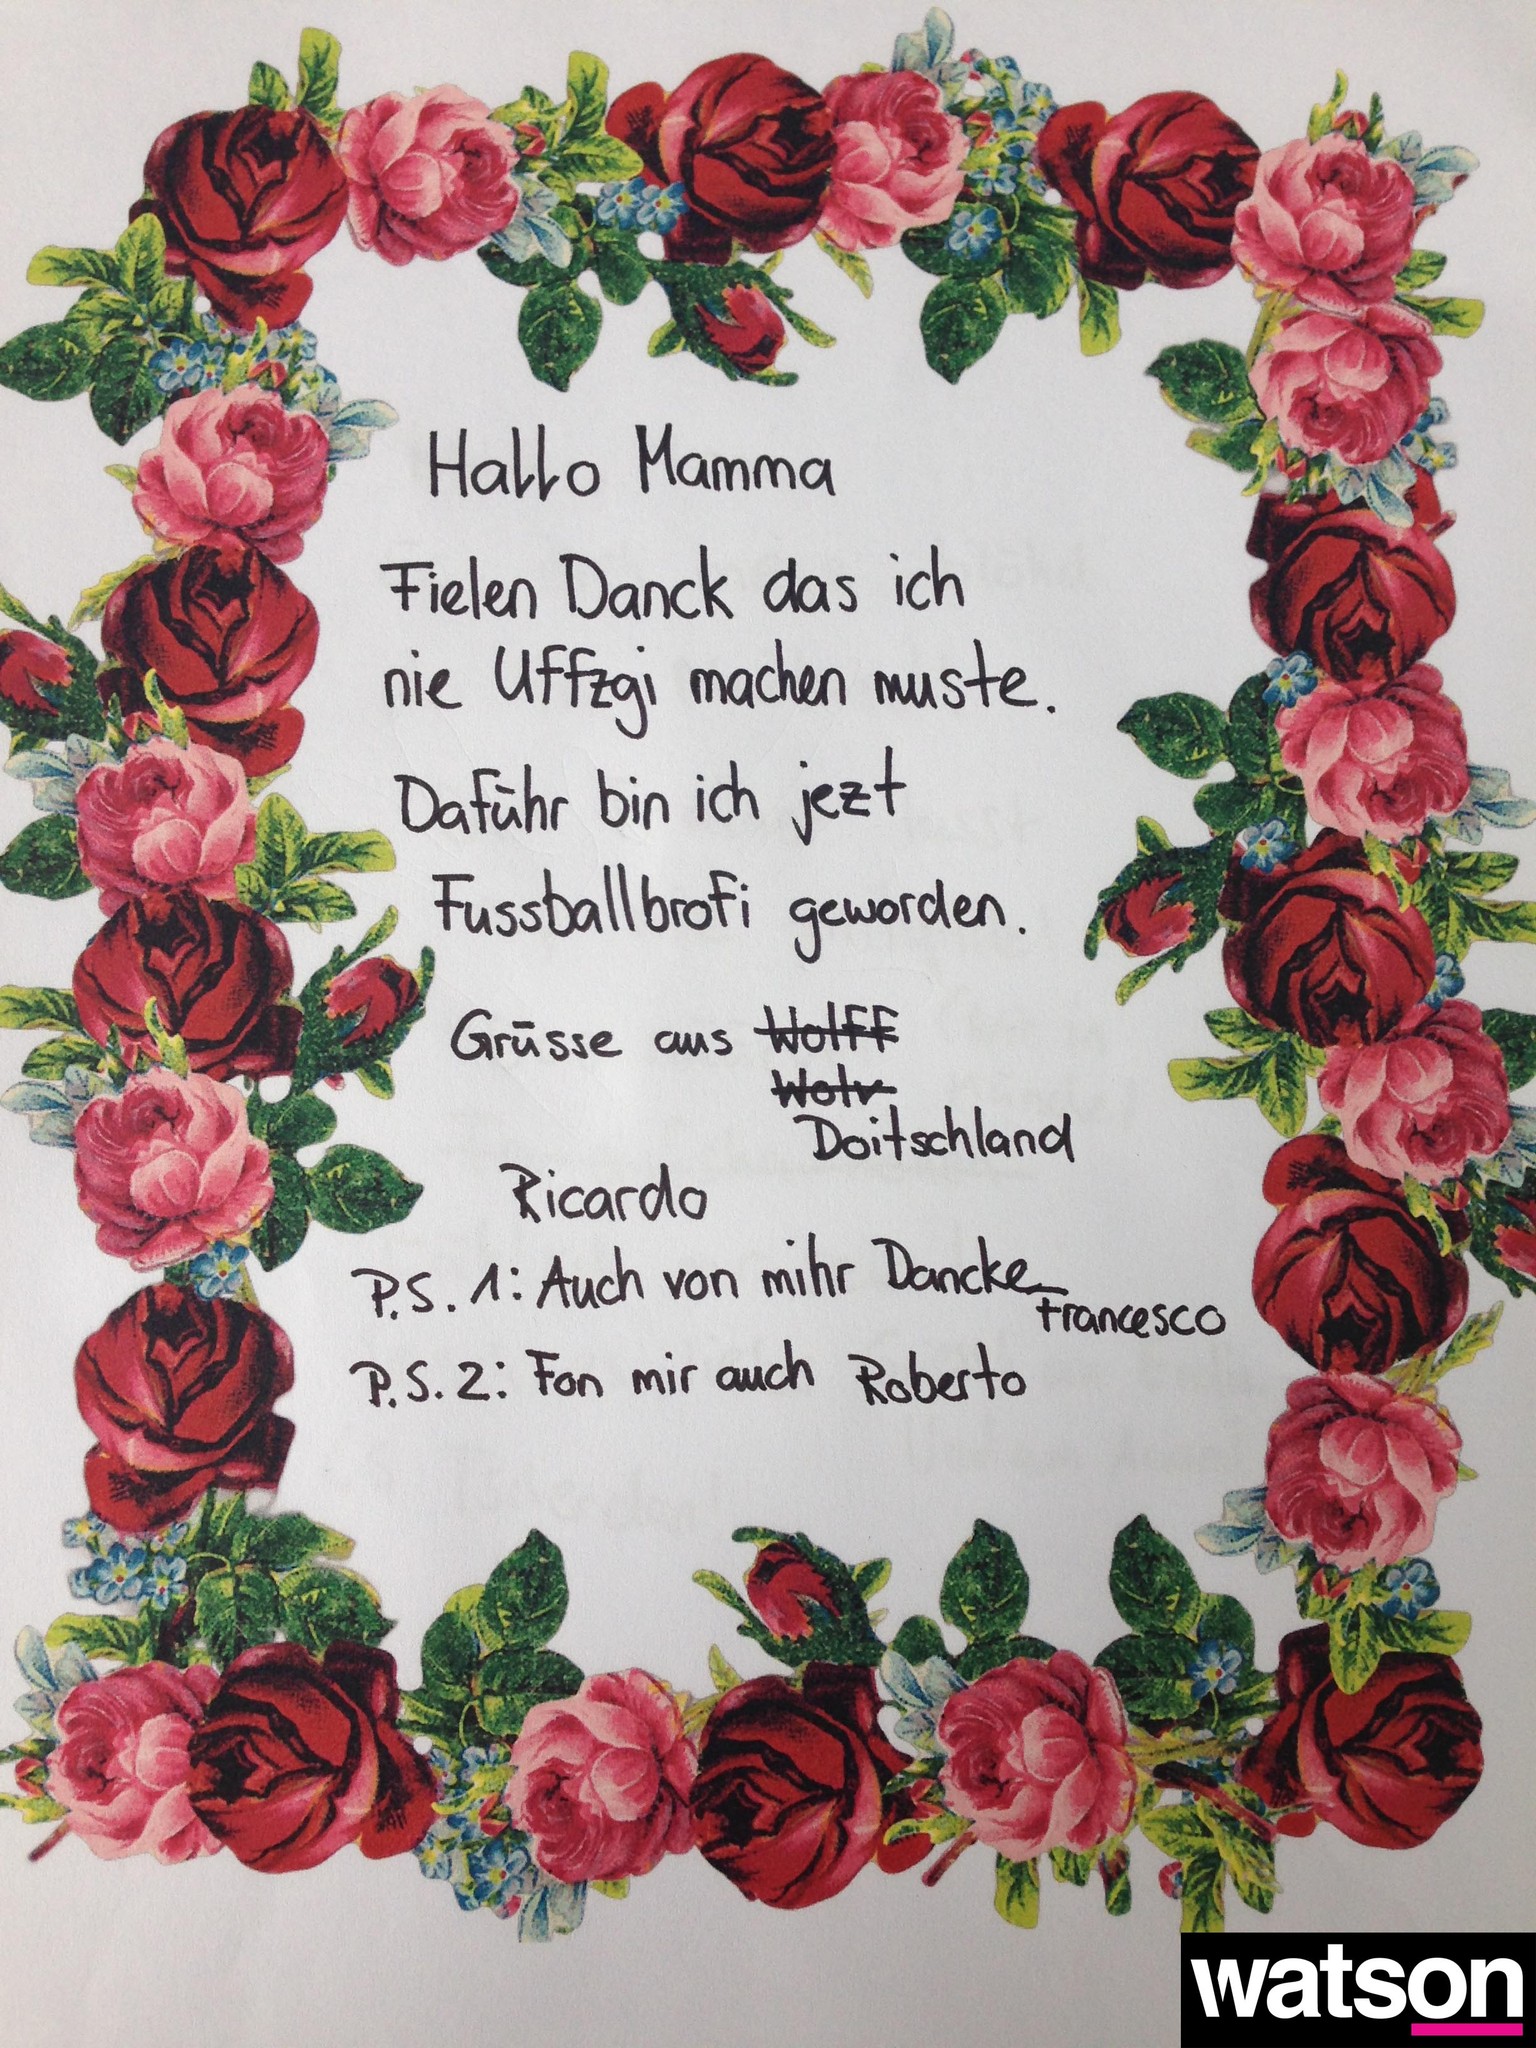 Hallo Mamma
Fielen Danck das ich
nie Uffzgi machen muste.
Daführ bin ich jezt
Fussballbrofi geworden.
Grüsse aus Wolff
Wolv
Doitschland
Ricardo
P.S. 1: Auch von mihr Dancke
Francesco
P.S. 2: Fon mir auch Roberto
watson